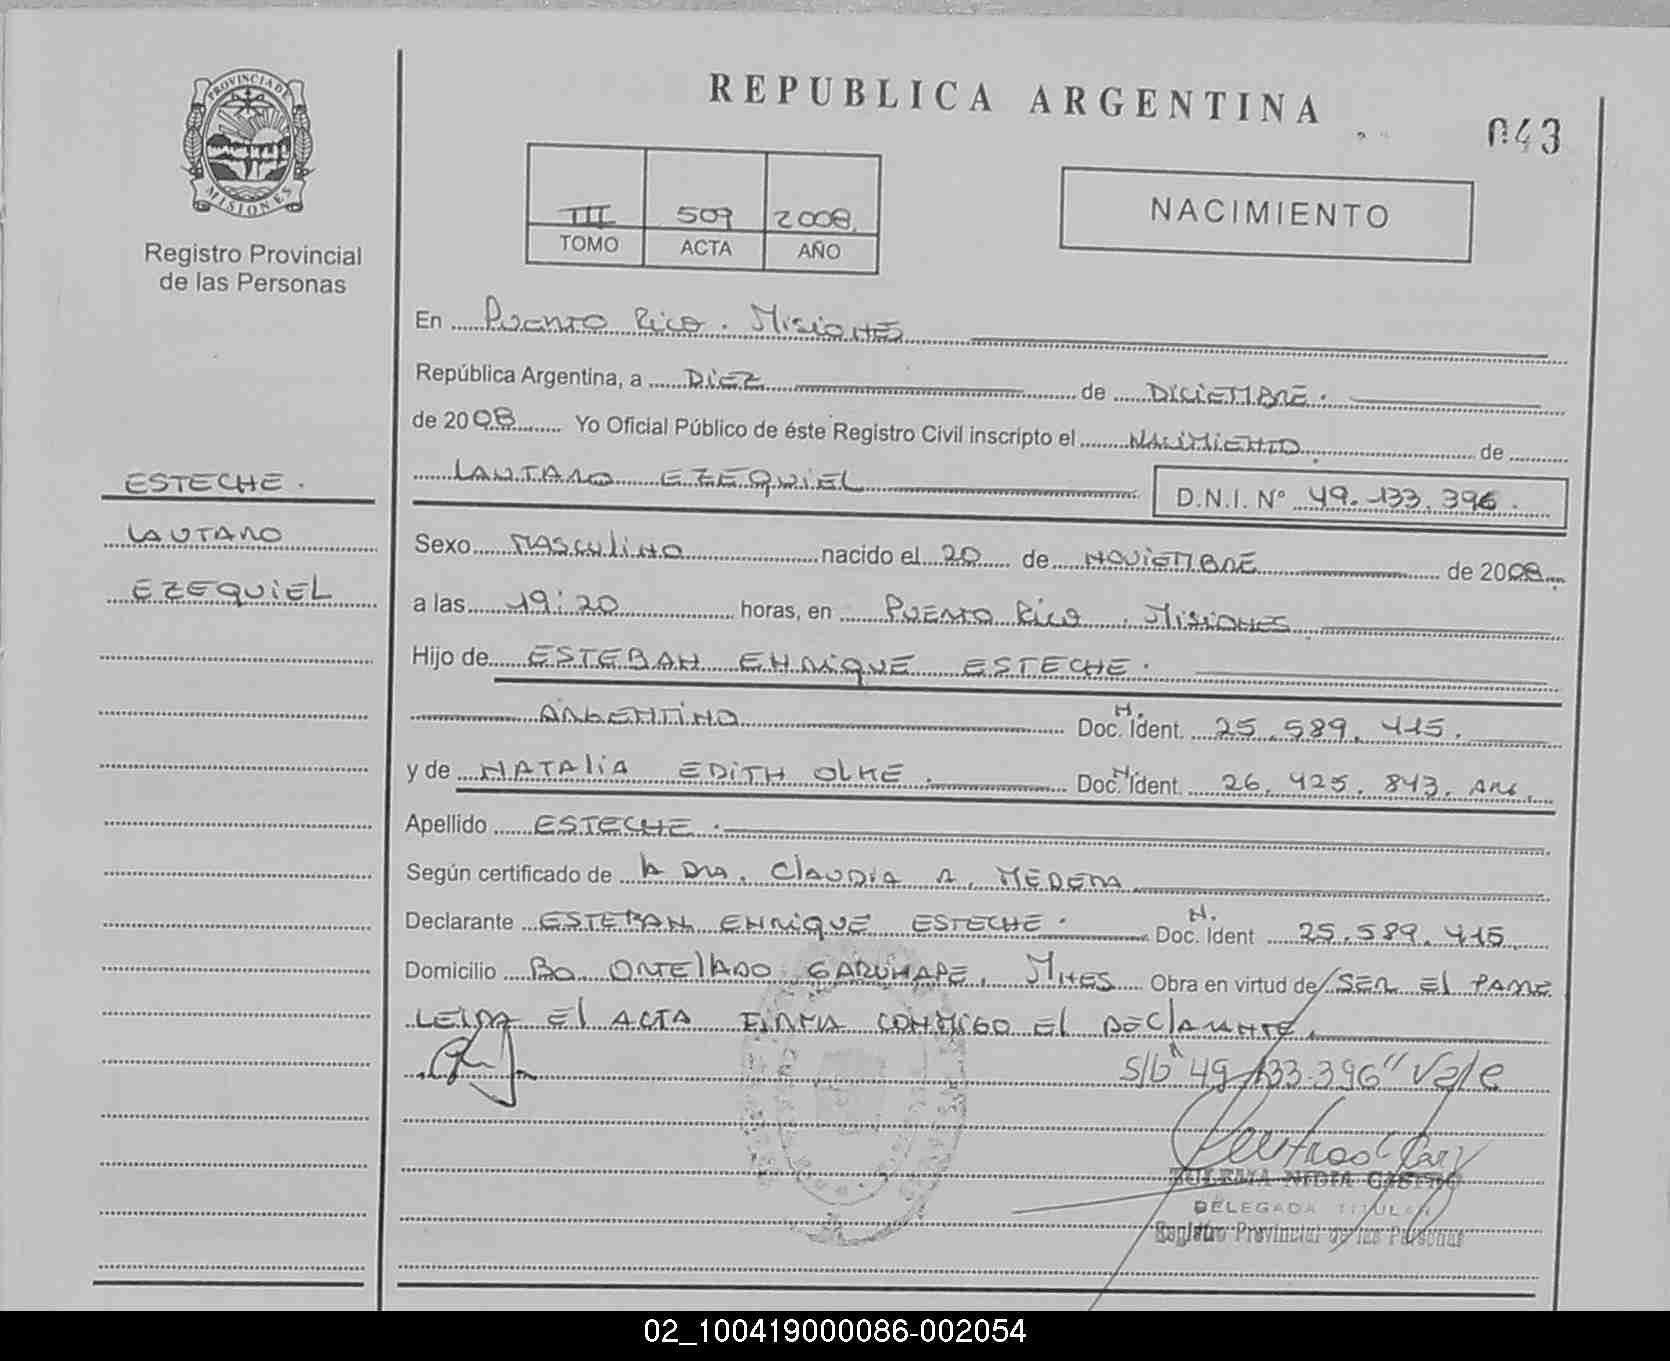 PROVINCIA DE
MISIONES
Registro Provincial
de las Personas
ESTECHE.
LAUTARO
EZEQUIEL
REPUBLICA ARGENTINA
043
III 509 2008.
TOMO ACTA AÑO
NACIMIENTO
En PUERTO RICO. MISIONES
República Argentina, a DIEZ de DICIEMBRE.
de 2008 Yo Oficial Público de éste Registro Civil inscripto el NACIMIENTO de
LAUTARO EZEQUIEL D.N.I. Nº 49.133.396.
Sexo MASCULINO nacido el 20 de NOVIEMBRE de 2008
a las 19:20 horas, en PUERTO RICO. MISIONES
Hijo de ESTEBAN ENRIQUE ESTECHE.
ARGENTINO Doc. N. Ident. 25.589.415.
y de NATALIA EDITH OLKE. Doc. N. Ident. 26.425.843. ARG.
Apellido ESTECHE.
Según certificado de la DRA. CLAUDIA A. MEDERA
Declarante ESTEBAN ENRIQUE ESTECHE. Doc. N. Ident 25.589.415
Domicilio Bo ORTELLADO GARUHAPE, MNES Obra en virtud de SER EL PADRE
LEIDA El ACTA FIRMA CONMIGO El DECLARANTE.
S/b "49.133.396" Vale
ZULEMA NIDIA CASTRO
DELEGADA TITULAR
Registro Provincial de las Personas
02_100419000086-002054